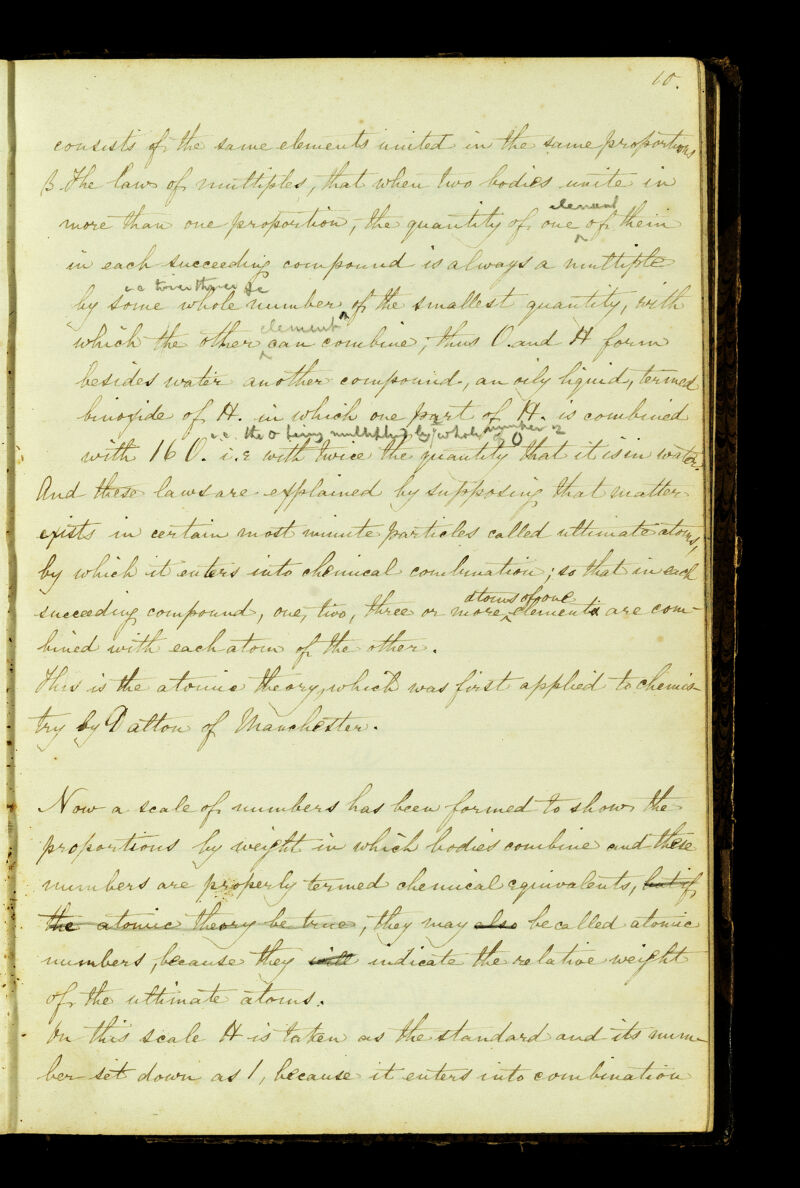 10.
consists of the same elements united in the same proportions
3. The law of multiples, that when two bodies unite in
element
more than one proportion, the quantity of one of them
in each succeeding compound is always a multiple
by some whole number of the smallest quantity, with
element
which the other can combine, thus O. and H form
besides water another compound, an oily liquid, termed
binoxide of H. in which one part of H. is combined
i.e. the O being multiplied by whole number 2
with 16 O. i.e with twice the quantity of O that it is in water.
And these laws are explained by supposing that matter
exists in certain most minute particles called ultimate atoms,
by which it enters into chemical combination; so that in each
atoms of one
succeeding compound, one, two, three or more elements are com-
bined with each atom of the other.
This is the atomic theory, which was first applied to chemis-
try by Dalton of Manchester.
Now a scale of numbers has been formed to show the
proportions by weight in which bodies combine and these
numbers are properly termed chemical equivalents, but if
the atomic theory be true, they may also be called atomic
numbers, because they will indicate the relative weight
of the ultimate atoms.
On this scale H is taken as the standard and its num-
ber set down as 1, because it enters into combination